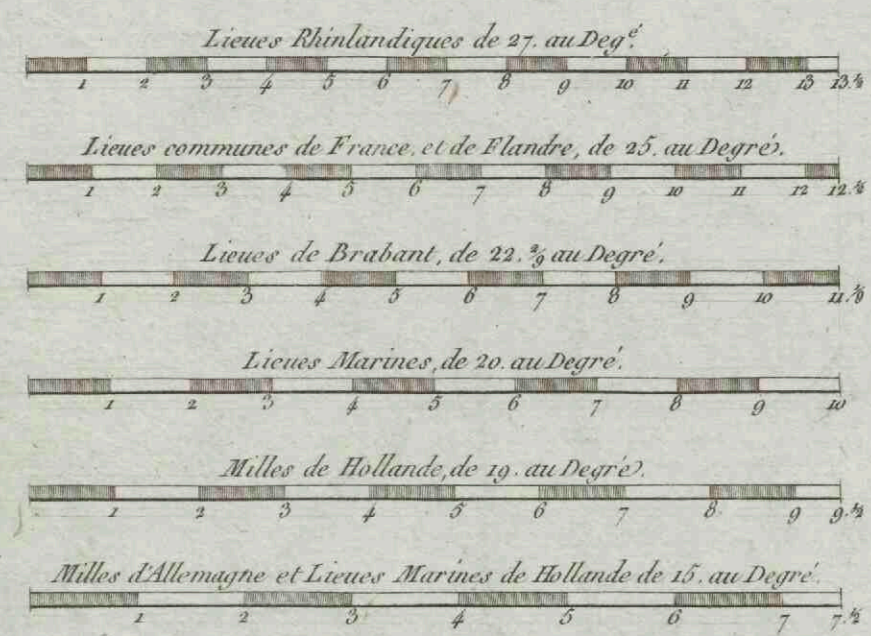 Lieues Rhinlandiques de 27. au Degé.
1 2 3 4 5 6 7 8 9 10 11 12 13 13.½
Lieues communes de France. et de Flandre, de 25. au Degré.
1 2 3 4 5 6 7 8 9 10 11 12 12.½
Lieues de Brabant, de 22. 2/9 au Degré.
1 2 3 4 5 6 7 8 9 10 11.1/9
Lieues Marines, de 20. au Degré.
1 2 3 4 5 6 7 8 9 10
Milles de Hollande, de 19. au Degré.
1 2 3 4 5 6 7 8 9 9.½
Milles d'Allemagne et Lieues Marines de Hollande de 15. au Degré.
1 2 3 4 5 6 7 7.½